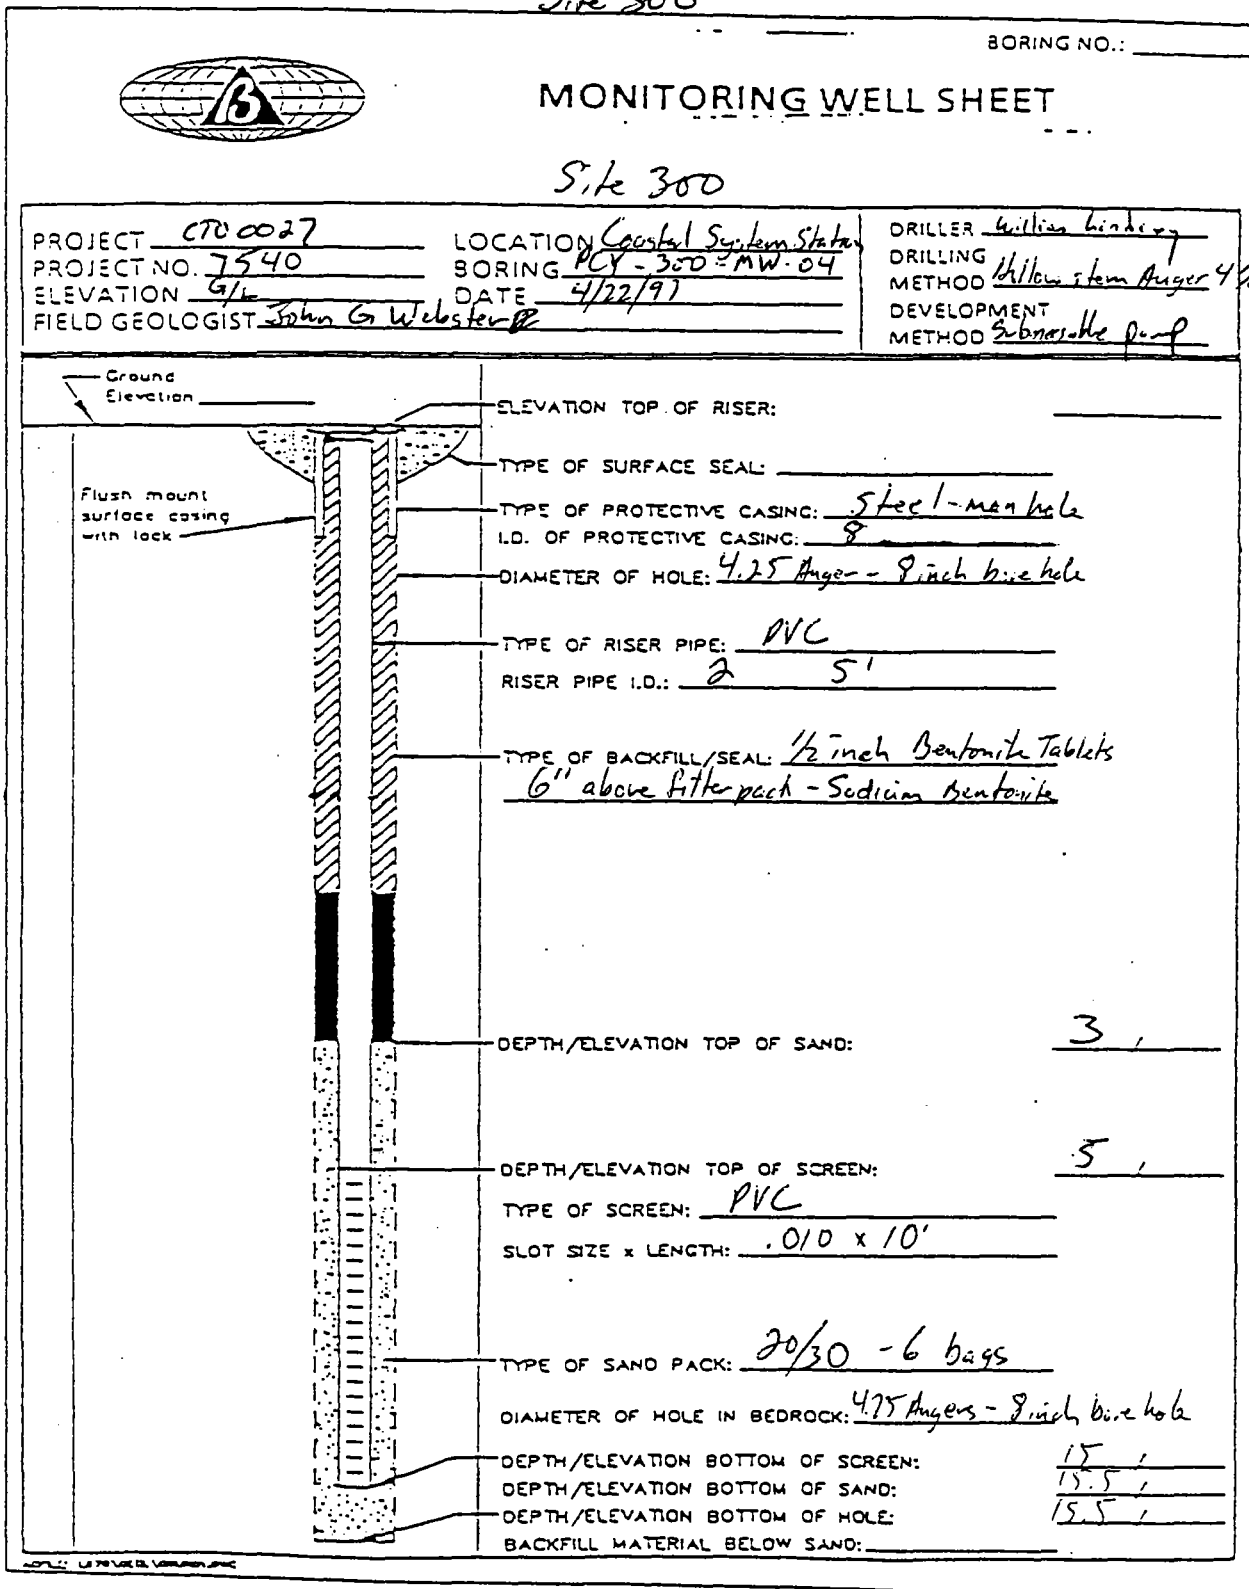 Site 300
BORING NO.:
B
MONITORING WELL SHEET
Site 300
PROJECT CTO 0027
PROJECT NO. 7540
ELEVATION G/L
FIELD GEOLOGIST John G Webster
LOCATION Coastal System Station
BORING PCY-300-MW-04
DATE 4/22/97
DRILLER William
DRILLING
METHOD Hollow stem Auger 4
DEVELOPMENT
METHOD Submersable pump
Ground
Elevation
ELEVATION TOP OF RISER:
TYPE OF SURFACE SEAL:
Flush mount
surface casing
with lock
TYPE OF PROTECTIVE CASING: Steel-man hole
I.D. OF PROTECTIVE CASING: 8
DIAMETER OF HOLE: 4.25 Auger - 8 inch bore hole
TYPE OF RISER PIPE: PVC
RISER PIPE I.D.: 2 5'
TYPE OF BACKFILL/SEAL: 1/2 inch Bentonite Tablets
6" above filter pack - Sodium Bentonite
DEPTH/ELEVATION TOP OF SAND: 3 /
DEPTH/ELEVATION TOP OF SCREEN: 5 /
TYPE OF SCREEN: PVC
SLOT SIZE x LENGTH: .010 x 10'
TYPE OF SAND PACK: 20/30 - 6 bags
DIAMETER OF HOLE IN BEDROCK: Augers - 8 inch bore hole
DEPTH/ELEVATION BOTTOM OF SCREEN: 15 /
DEPTH/ELEVATION BOTTOM OF SAND: 15.5 /
DEPTH/ELEVATION BOTTOM OF HOLE: 15.5 /
BACKFILL MATERIAL BELOW SAND: